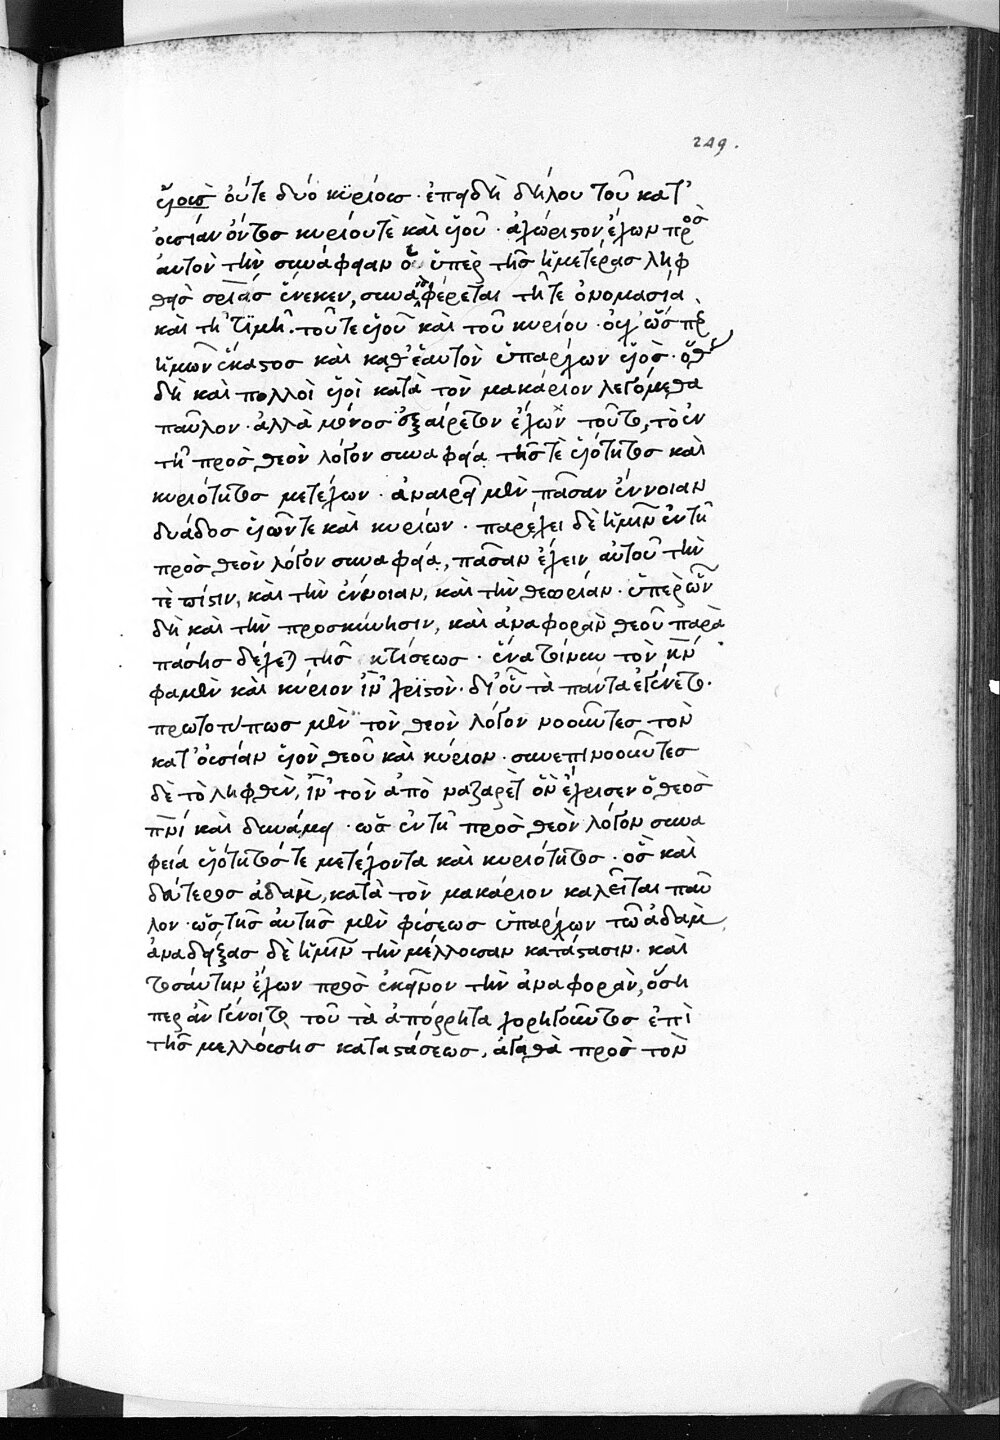 249.
υἱοὺς οὔτε δύο κυρίους · ἐπειδὴ δήλου τοῦ κατ'
οὐσίαν ὄντος κυρίου τὲ καὶ υἱοῦ · ἀχώριστον ἔχων πρὸς
αὐτὸν τὴν συνάφειαν ὁ ὑπὲρ τῆς ἡμετέρας ληφ
θεὶς σρίας ἕνεκεν, συναναφέρεται τῆ τε ὀνομασία
καὶ τῆ τιμῆ · τοῦ τε υἱοῦ καὶ τοῦ κυρίου · οὐχ' ὥσπερ
ἡμῶν ἕκαστος καὶ καθ' ἑαυτὸν ὑπάρχων υἱὸς · ὅθεν
δὴ καὶ πολλοὶ υἱοὶ κατὰ τὸν μακάριον λεγόμεθα
παῦλον · ἀλλὰ μόνος ἐξαίρετον ἔχων τοῦτο, τὸ ἐν
τῆ πρὸς θεὸν λόγον συναφεία τῆς τὲ υἱότητος καὶ
κυριότητος μετέχων · ἀναιρεῖ μὲν πᾶσαν ἔννοιαν
δυάδος υἱῶν τε καὶ κυρίων · παρέχει δὲ ἡμῖν ἐν τῆ
πρὸς θεὸν λόγον συναφεία, πᾶσαν ἔχειν αὐτοῦ τὴν
τὲ πίστιν, καὶ τὴν ἔννοιαν, καὶ τὴν θεωρίαν · ὑπὲρ ὧν
δὴ καὶ τὴν προσκύνησιν, καὶ ἀναφορὰν θεοῦ παρὰ
πάσης δέχεται τῆς κτίσεως · ἕνα τοίνυν τὸν υν
φαμὲν καὶ κύριον ιν χριστὸν · δι' οὗ τὰ πάντα ἐγένετο ·
πρωτοτύπως μὲν τὸν θεὸν λόγον νοοῦντες τὸν
κατ' οὐσίαν υἱὸν θεοῦ καὶ κύριον · συνεπινοοῦντες
δὲ τὸ ληφθὲν, ιν τὸν ἀπὸ ναζαρὲτ ὃν ἔχρισεν ὁ θεὸς
πνι καὶ δυνάμει · ὡς ἐν τῆ πρὸς θεὸν λόγον συνα
φεία υἱότητός τε μετέχοντα καὶ κυριότητος · ὃς καὶ
δεύτερος ἀδὰμ, κατὰ τὸν μακάριον καλεῖται παῦ
λον · ὡς τῆς αὐτῆς μὲν φύσεως ὑπάρχων τῶ ἀδὰμ,
ἀναδείξας δὲ ἡμῖν τὴν μέλλουσαν κατάστασιν · καὶ
τοσαύτην ἔχων πρὸς ἐκεῖνον τὴν ἀναφορὰν, ὅση
περ ἂν γένοιτο τοῦ τὰ ἀπόρρητα χορηγοῦντος ἐπὶ
τῆς μελλούσης καταστάσεως, ἀγαθὰ πρὸς τὸν